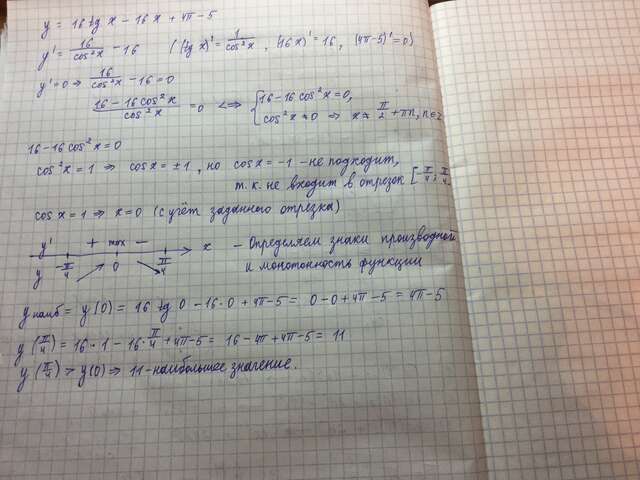 y = 16 tg x - 16 x + 4π - 5
y' = 16/cos²x - 16 ( (tg x)' = 1/cos²x , (16x)' = 16, (4π-5)' = 0)
y' = 0 ⇒ 16/cos²x - 16 = 0
(16 - 16 cos²x)/cos²x = 0 <=> { 16 - 16 cos²x = 0,
cos²x ≠ 0 ⇒ x ≠ π/2 + πn, n∈Z
16 - 16 cos²x = 0
cos²x = 1 ⇒ cos x = ±1 , но cos x = -1 - не подходит,
т.к. не входит в отрезок [-π/4; π/4
cos x = 1 ⇒ x = 0 (с учёт заданного отрезка)
y' + max - x - Определяем знаки производной
y -π/4 0 π/4 и монотонность функции
y наиб = y(0) = 16 tg 0 - 16·0 + 4π - 5 = 0 - 0 + 4π - 5 = 4π - 5
y(π/4) = 16·1 - 16·π/4 + 4π - 5 = 16 - 4π + 4π - 5 = 11
y(π/4) > y(0) ⇒ 11 - наибольшее значение.